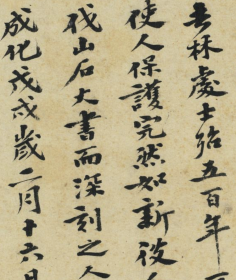 去林處士殆五百年
使人保護完然如新後人
伐山石大書而深刻之人
成化戊戌歲二月十六日